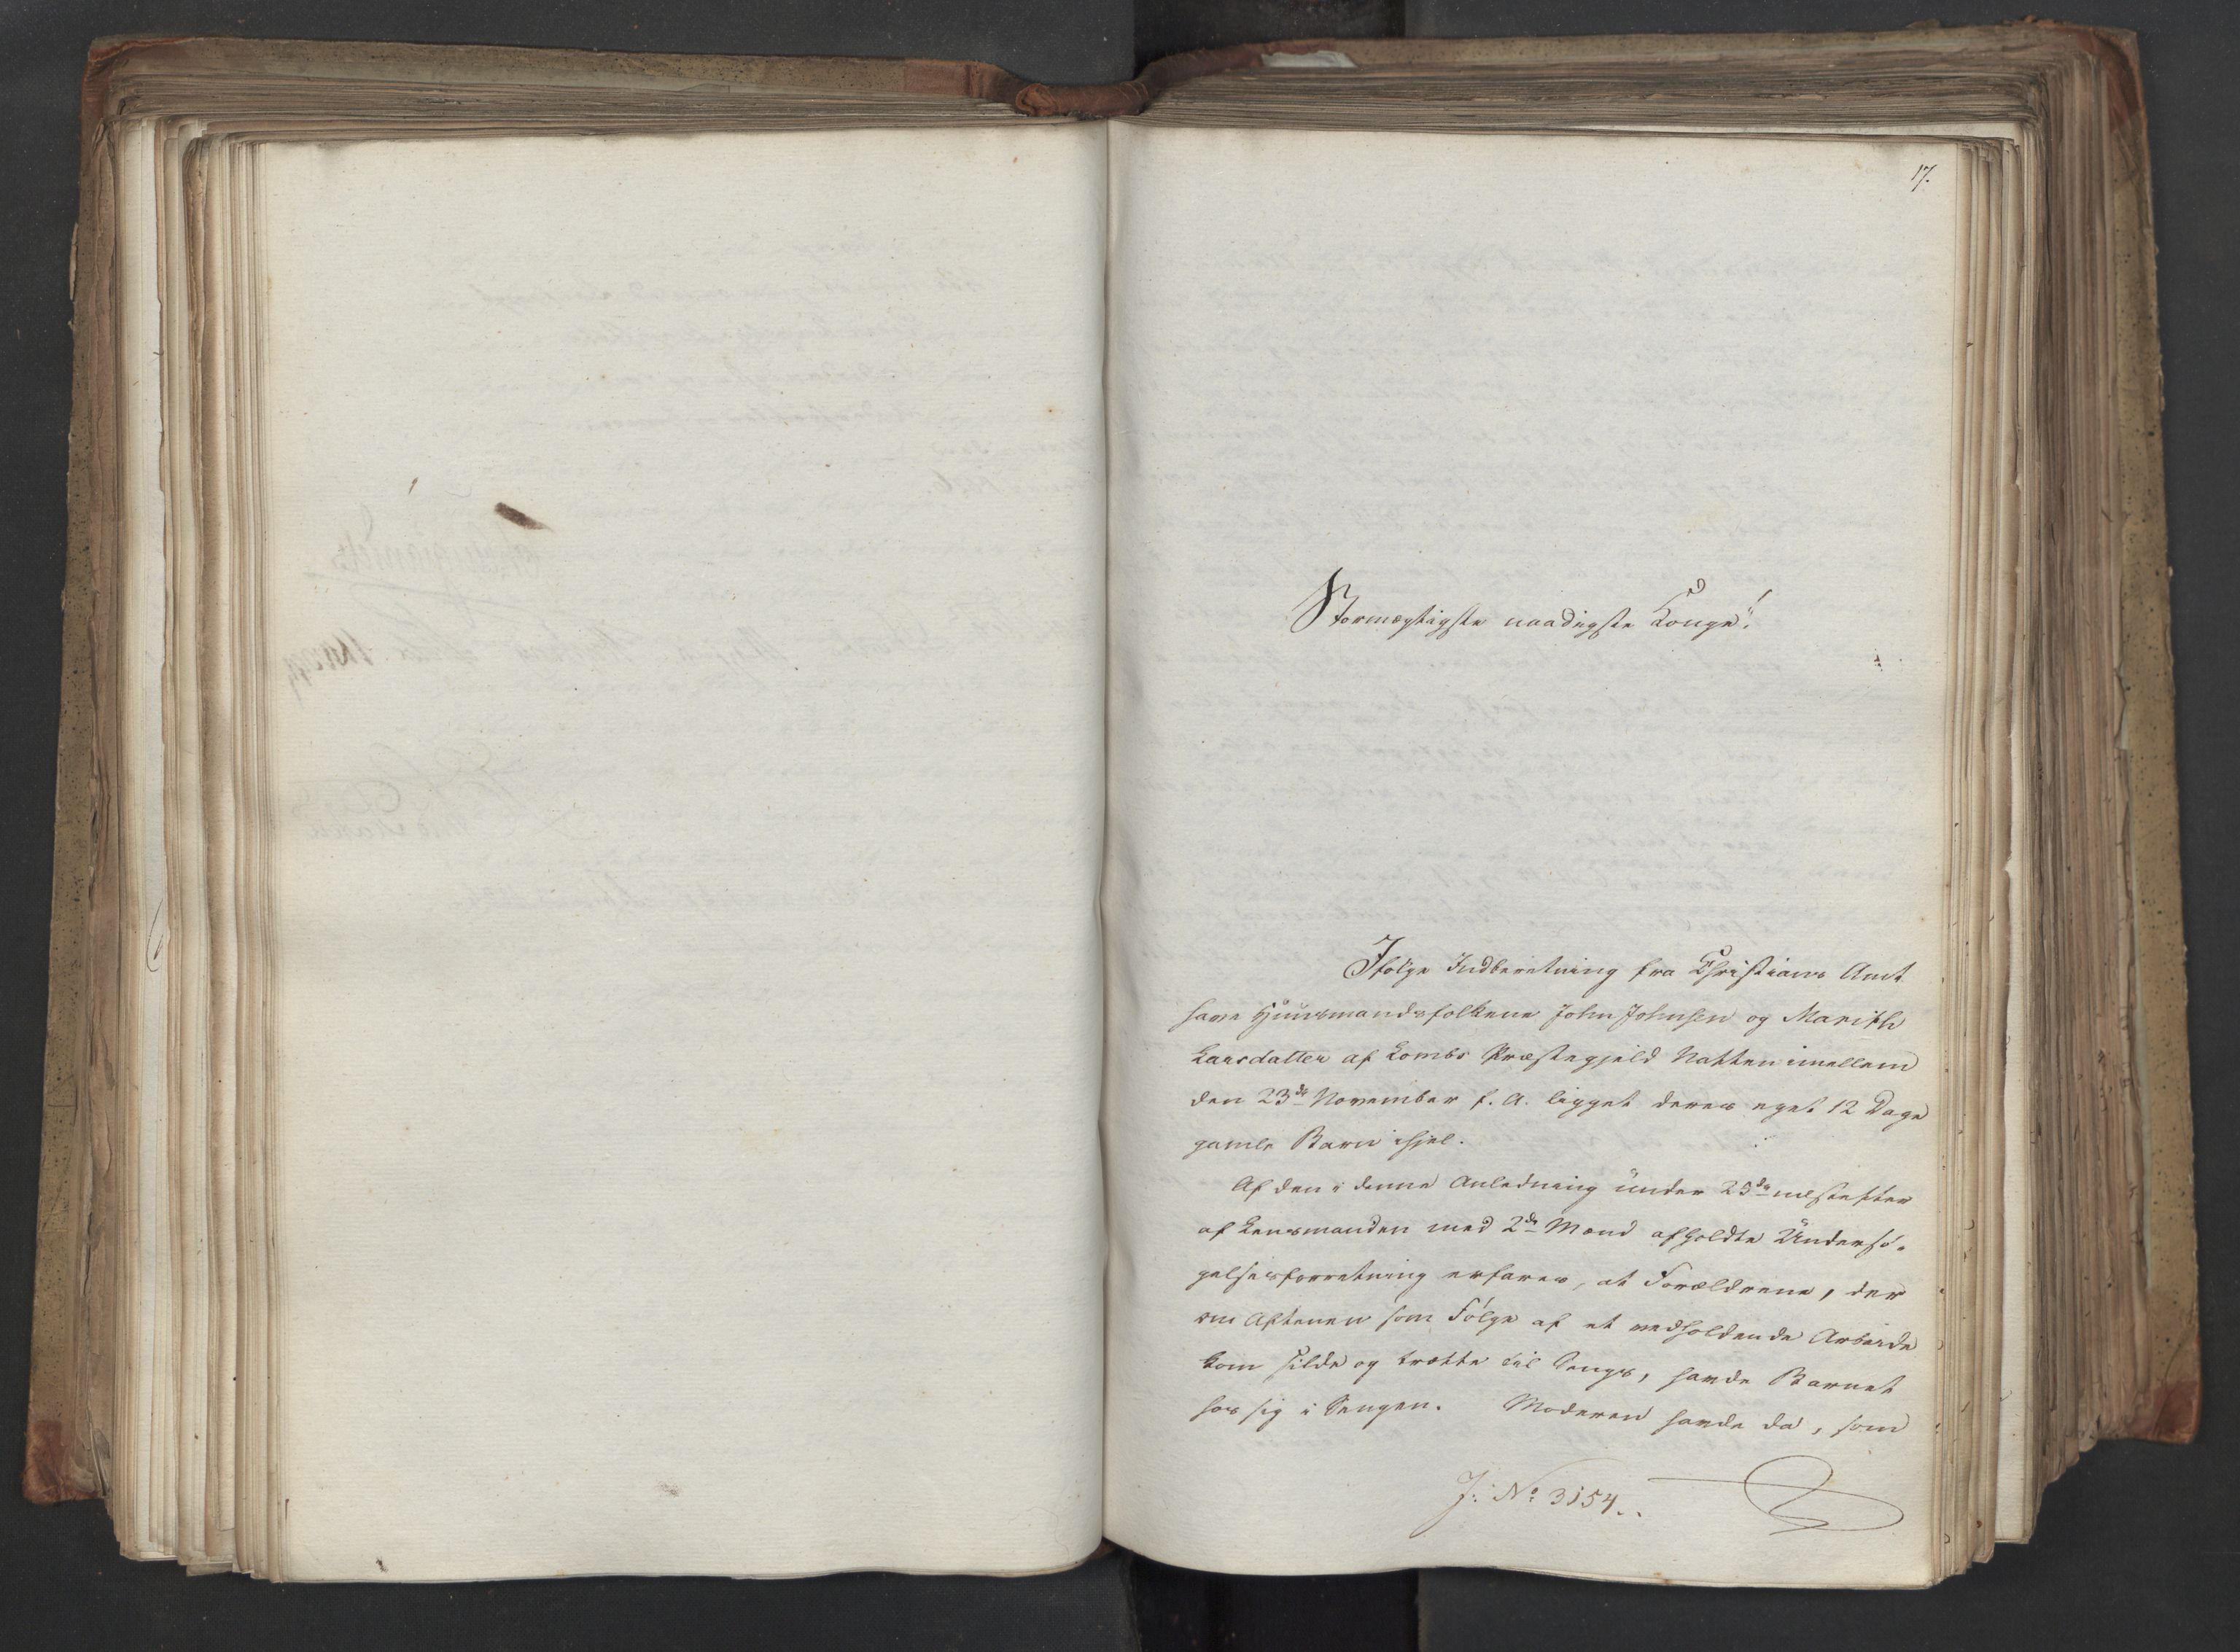 17.
Stormægtigste naadigste Konge!
Ifølge Indberetning fra Christians Amt
have Huusmandsfolkene John Johnsen og Marith
Larsdatter af Lombs Præstegjeld Natten imellem
den 23de November f. A. ligget deres eget 12 Dage
gamle Barn ihjel.
Af den i denne Anledning under 25de næstefter
af Lensmanden med 2de Mænd afholdte Undersø-
gelsesforretning erfares, at Forældrene, der
om Aftenen som Følge af et vedholdende Arbeide
kom silde og trætte til Sengs, havde Barnet
hos sig i Sengen. Moderen havde da, som
J: No: 3154.